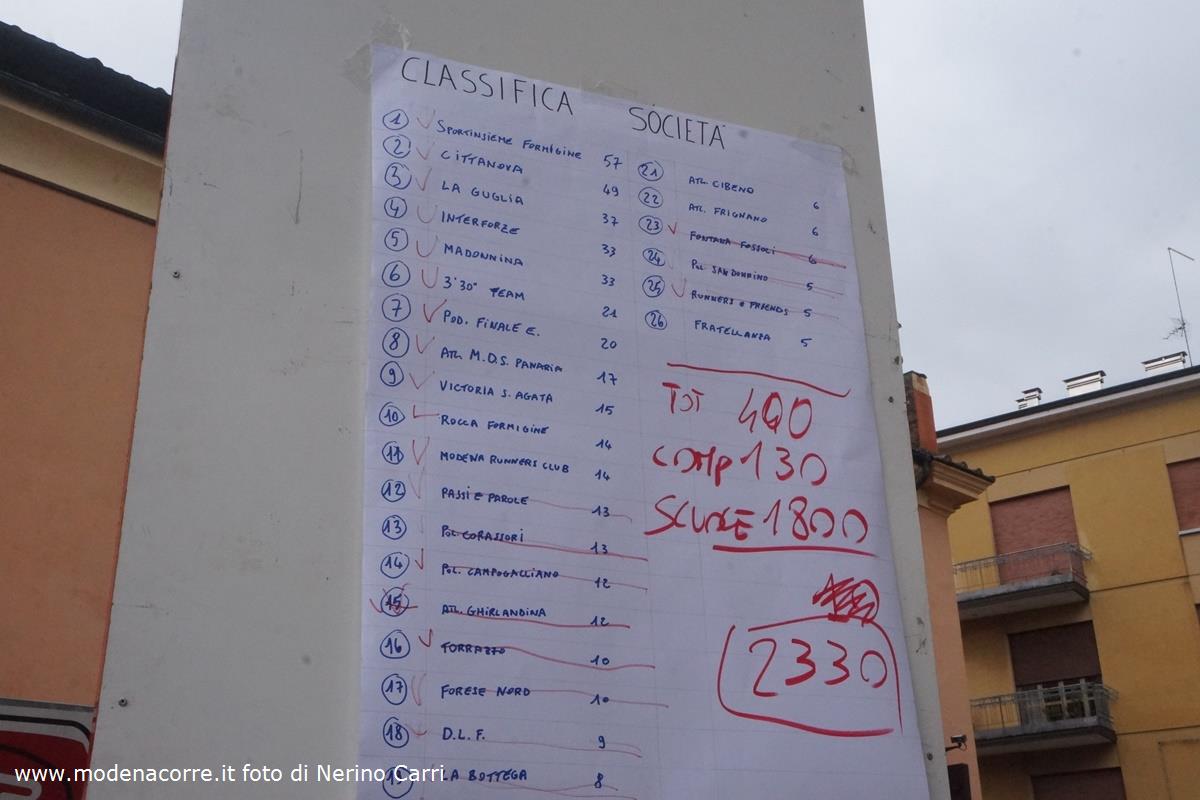 CLASSIFICA SOCIETÀ
1 SPORTINSIEME FORMIGINE 57
2 CITTANOVA 49
3 LA GUGLIA 37
4 INTERFORZE 33
5 MADONNINA 33
6 3'30" TEAM 21
7 POD. FINALE E. 20
8 ATL M.D.S. PANARIA 17
9 VICTORIA S. AGATA 15
10 ROCCA FORMIGINE 14
11 MODENA RUNNERS CLUB 14
12 PASSI E PAROLE 13
13 POL CORASSORI 13
14 POL. CAMPOGALLIANO 12
15 ATL. GHIRLANDINA 12
16 TORRAZZO 10
17 FORESE NORD 10
18 D.L.F. 9
19 LA BOTTEGA 8
21 ATL. CIBENO 6
22 ATL. FRIGNANO 6
23 FONTANA FOSSOLI 6
24 POL SAN DONNINO 5
25 RUNNERS e FRIENDS 5
26 FRATELLANZA 5
TOT 400
COMP 130
SCUOLE 1800
2330
www.modenacorre.it foto di Nerino Carri